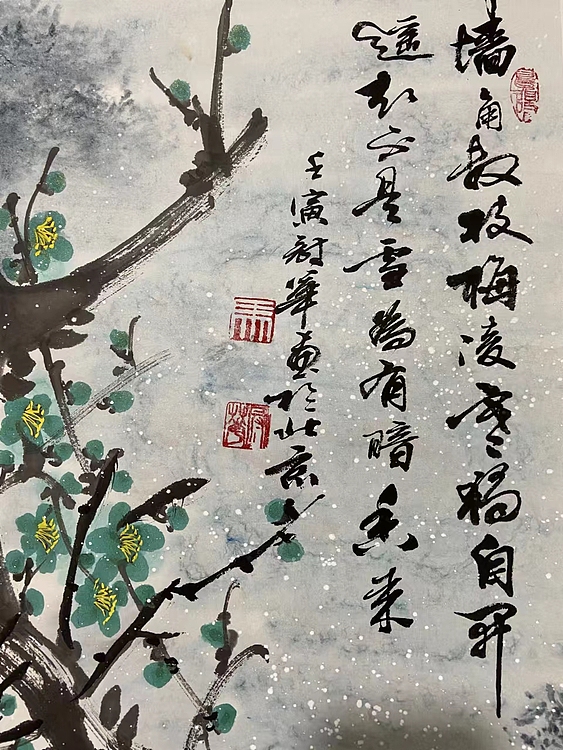 墙角数枝梅凌寒独自开
遥知不是雪為有暗香来
壬寅華画於北京